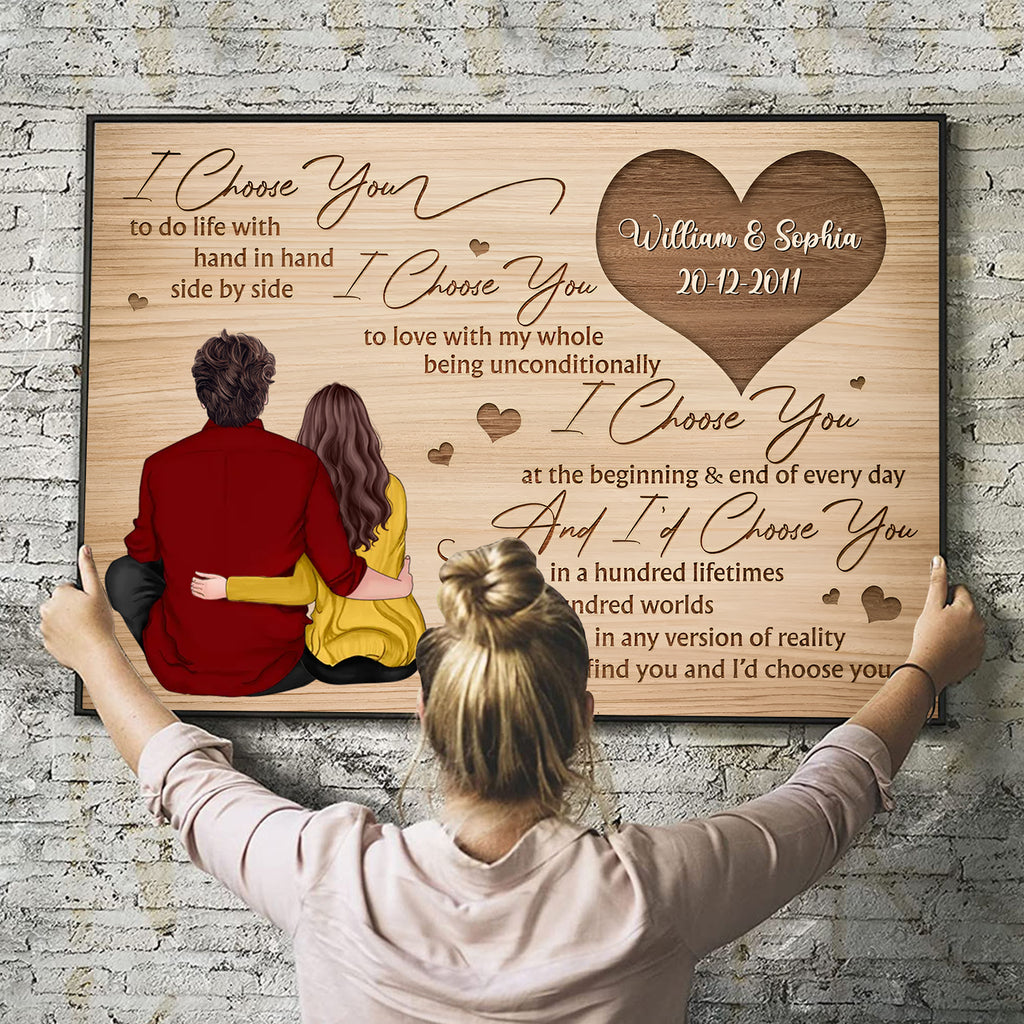 I Choose You
to do life with
hand in hand
side by side
I Choose You
to love with my whole
being unconditionally
William & Sophia
20-12-2011
I Choose You
at the beginning & end of every day
And I'd Choose You
in a hundred lifetimes
worlds
in any version of reality
find you and I'd choose you